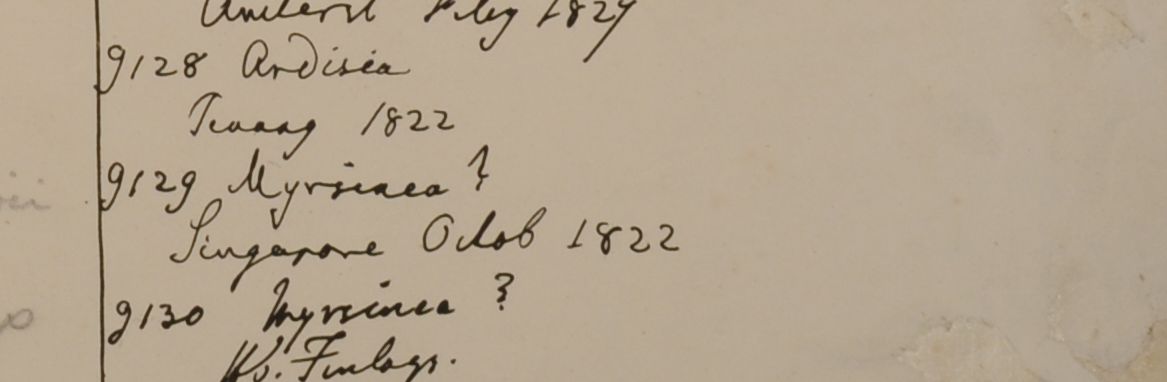 Amherst Feby 1827
9128 Ardisia
Penang 1822
9129 Myrsinea ?
Singapore Octob 1822
9130 Myrsinea ?
Hb. Finlays.